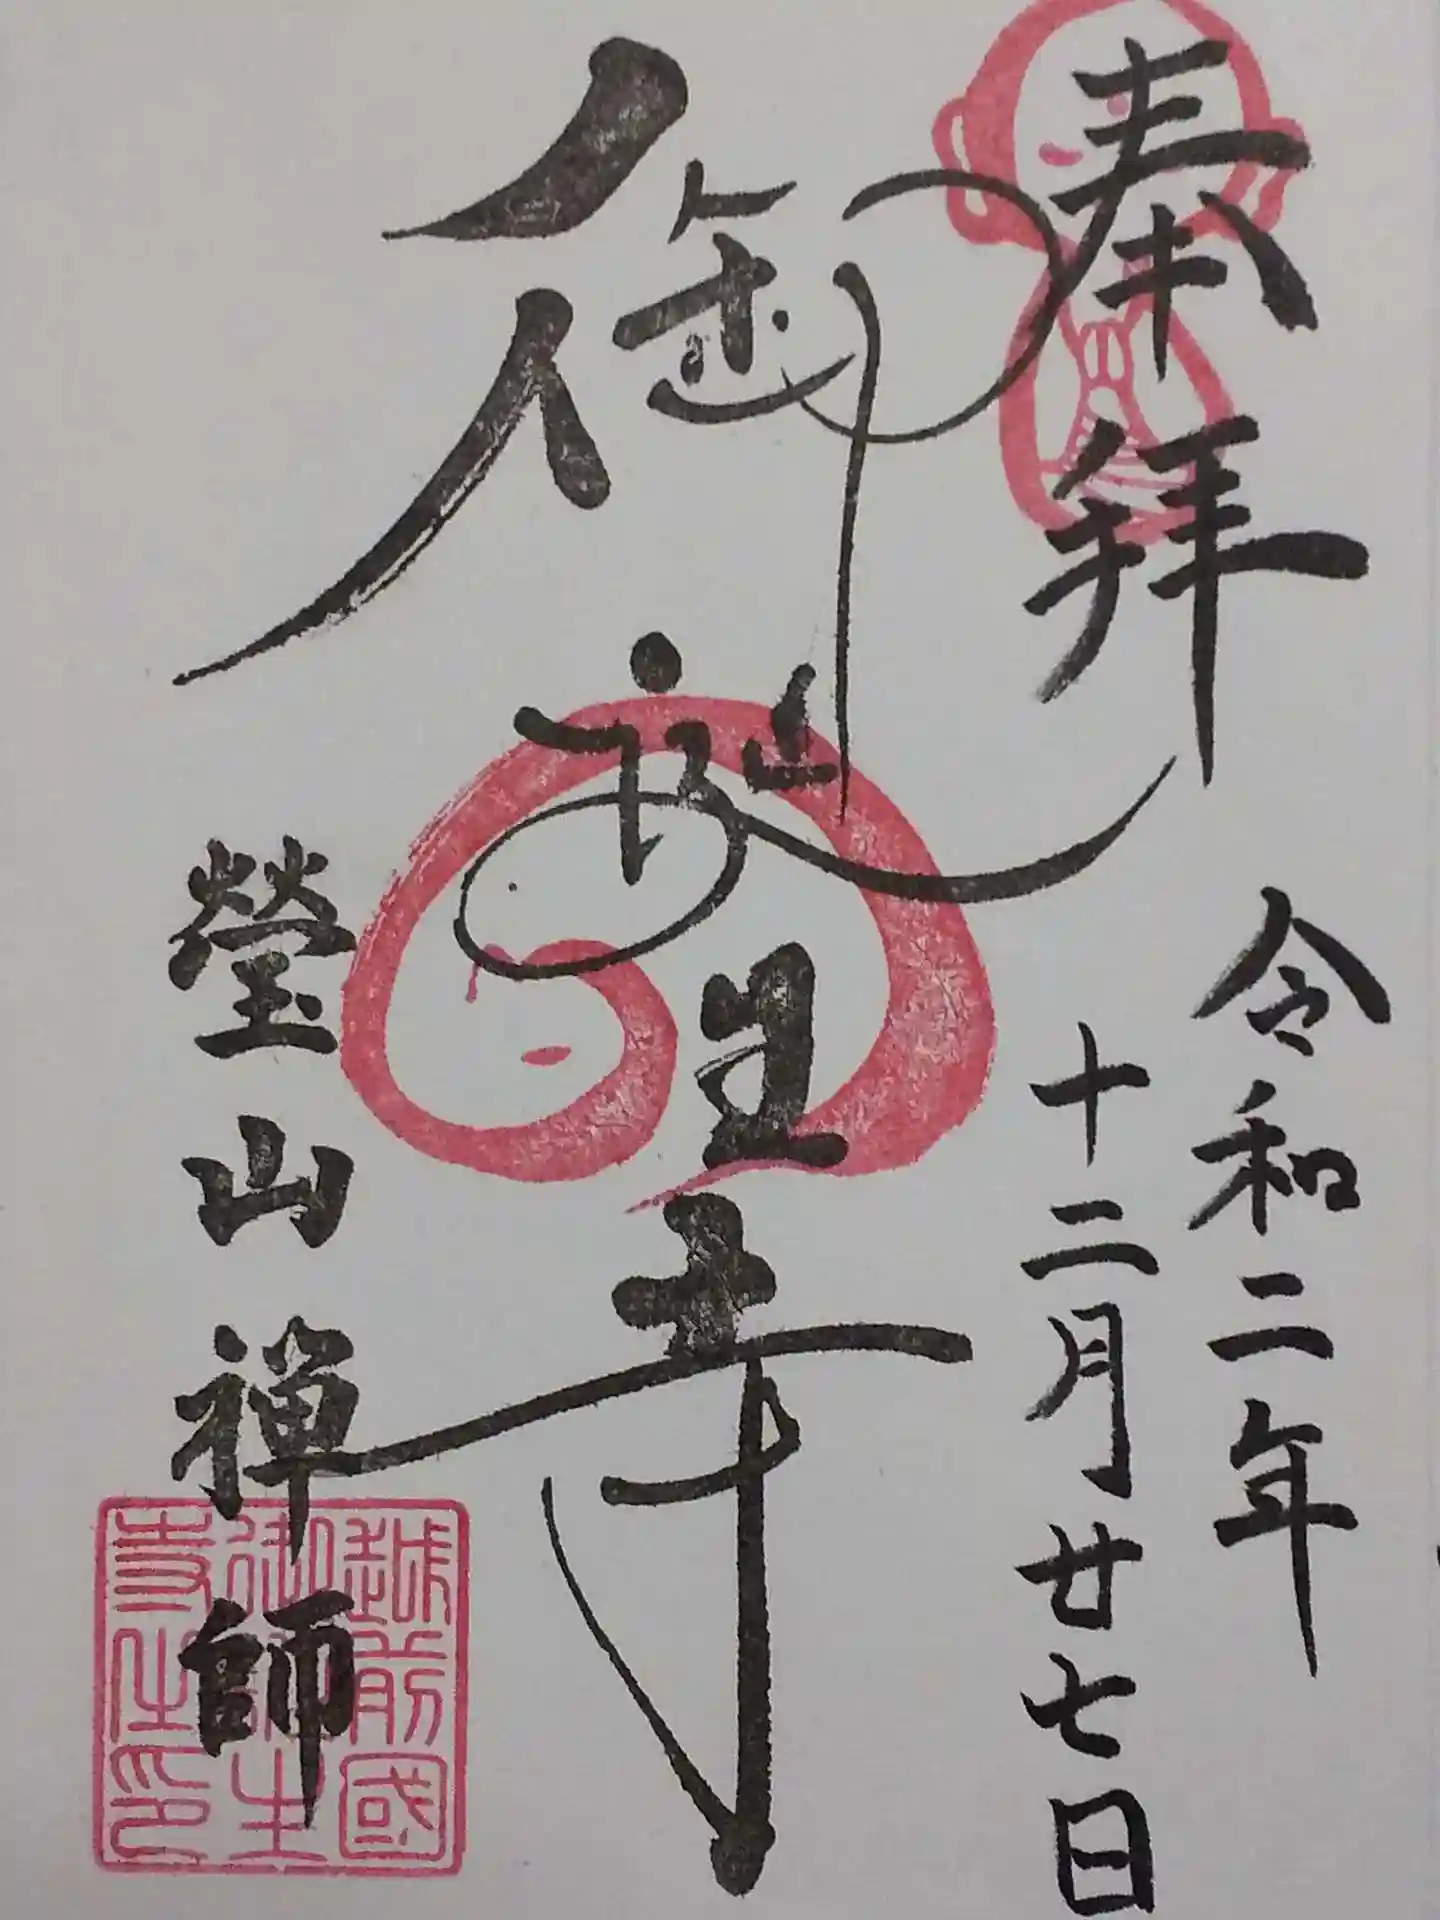 奉拜
令和二年
十二月廿七日
御誕生寺
瑩山禅師
越前國
御誕生
寺之印